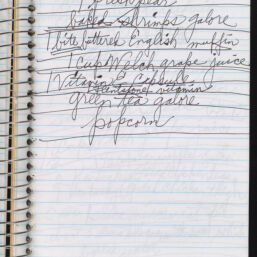 fresh pear
baked shrimps galore
1 bite buttered English muffin
1 cup Welch grape juice
1 Vitamin E Capsule
1 vitamin
green tea galore
popcorn